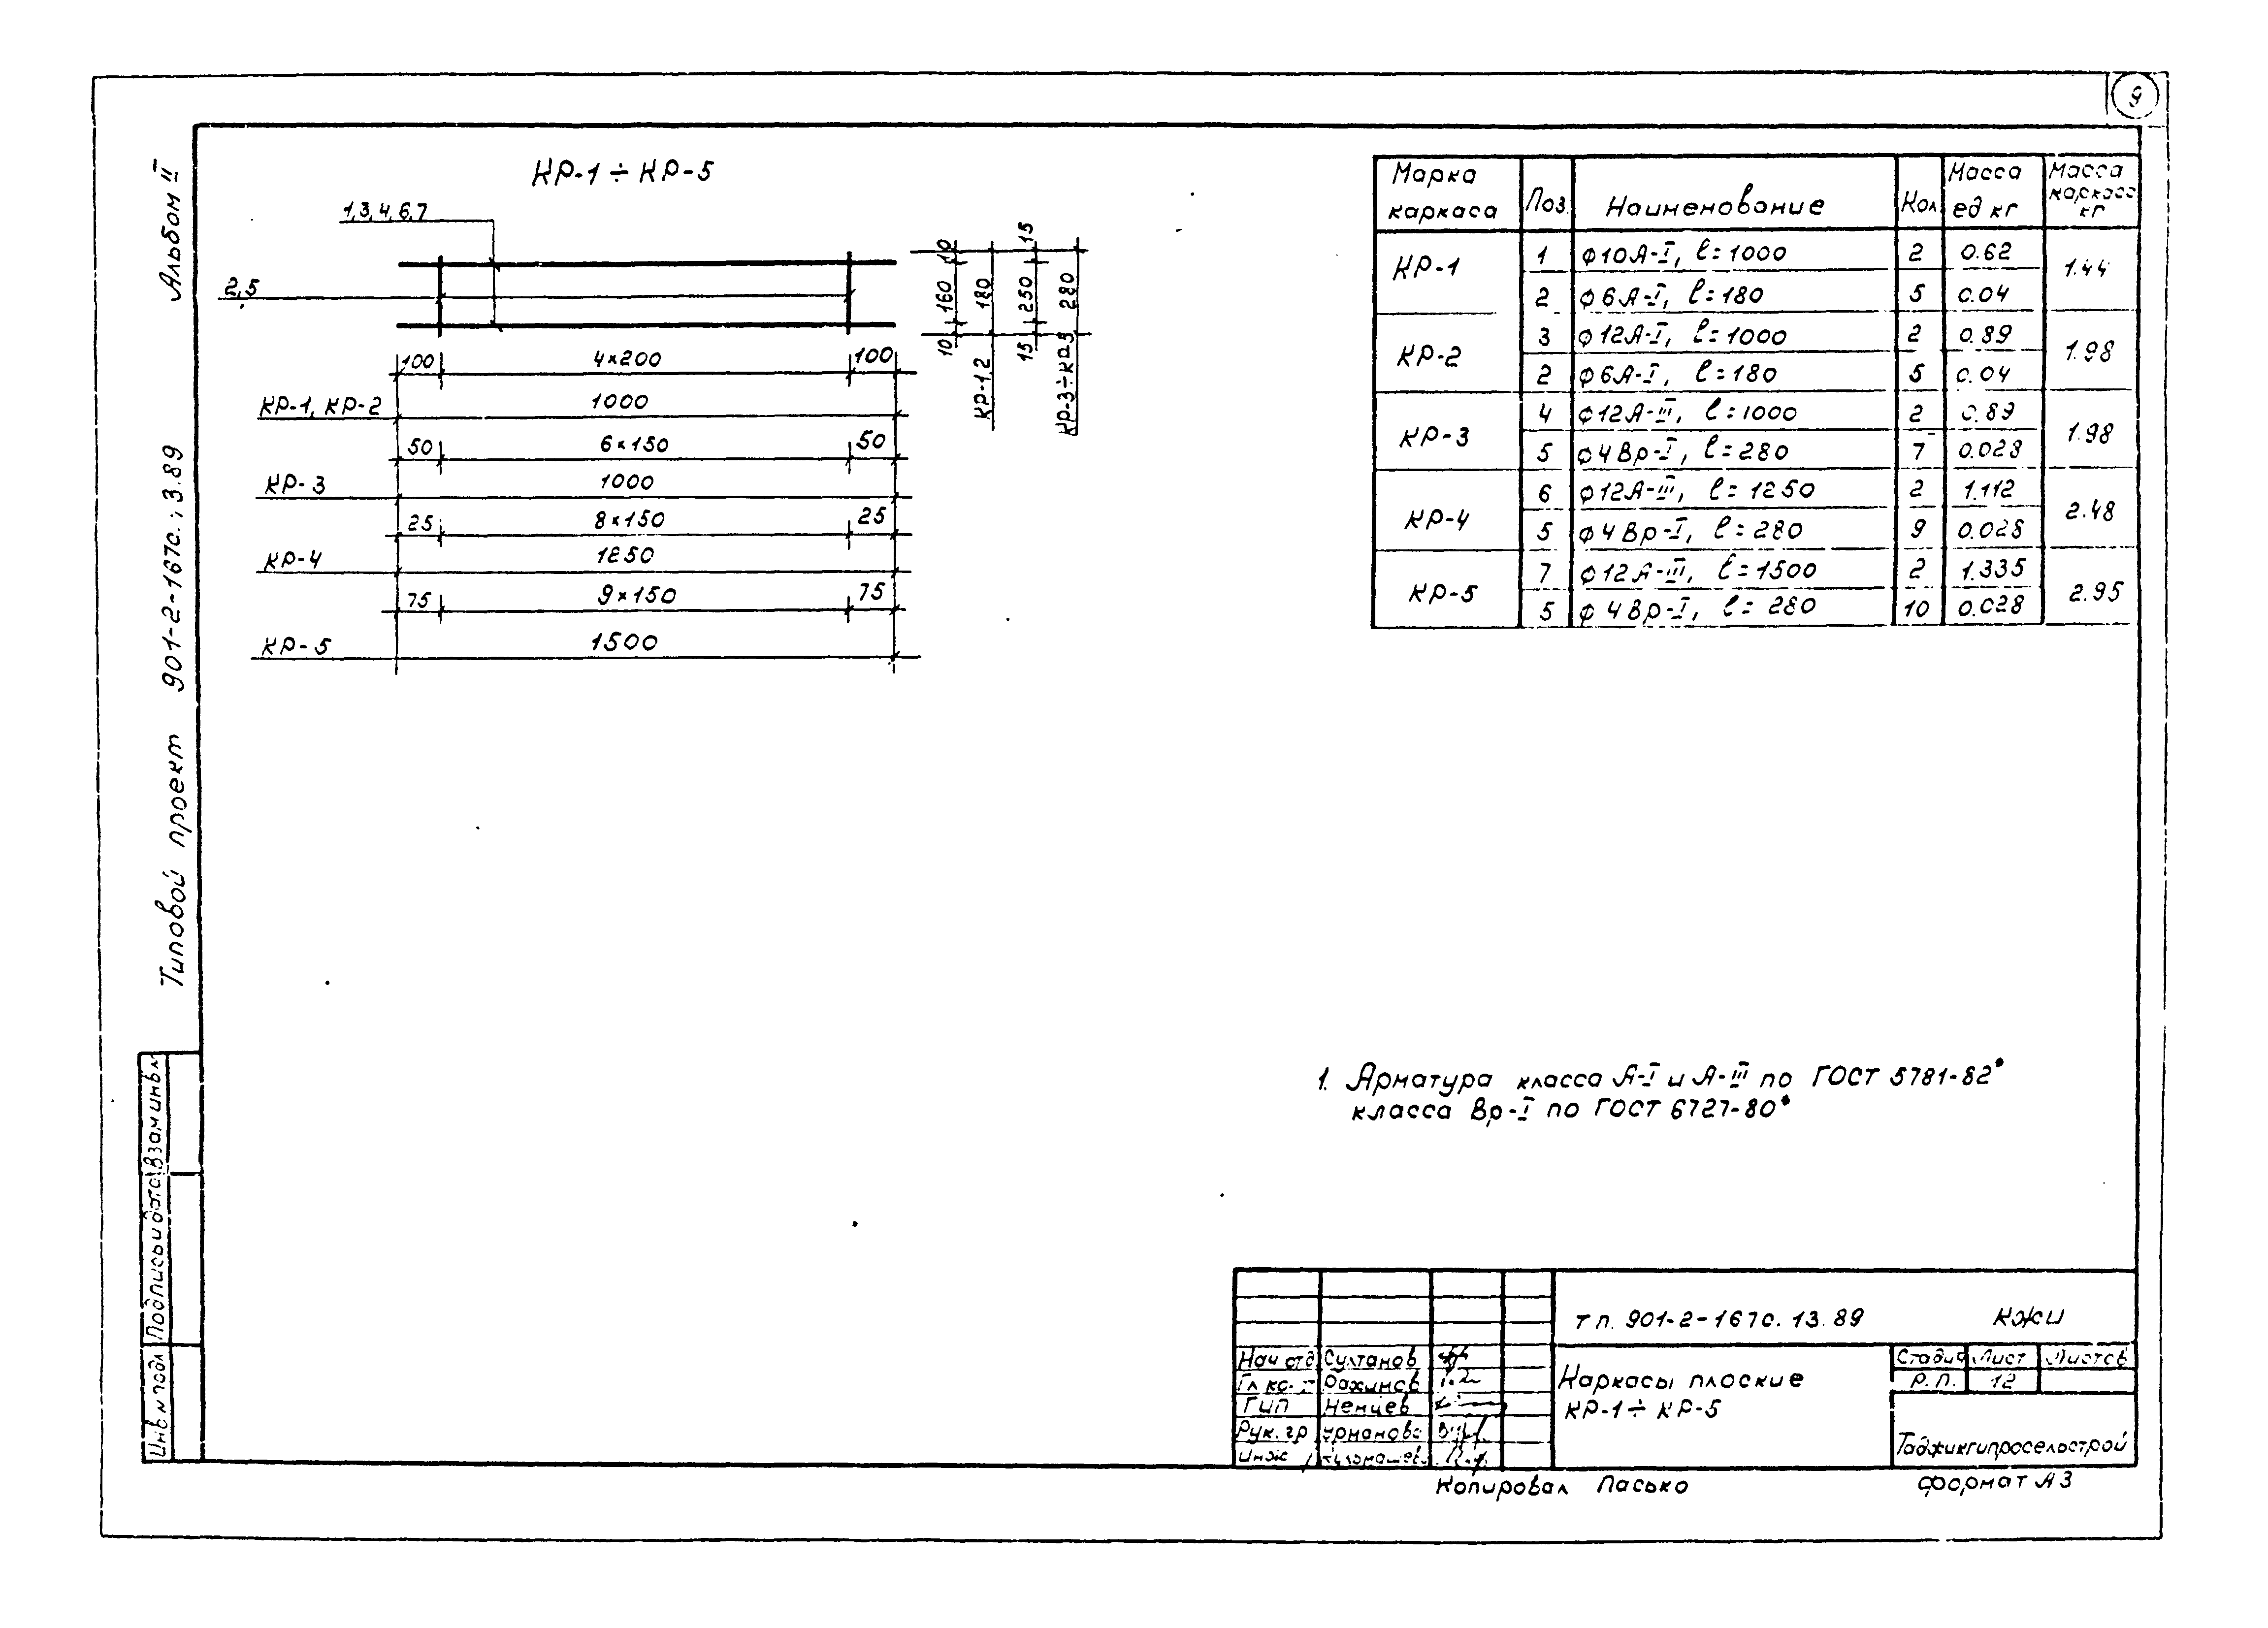 9
Альбом II
Типовой проект 901-2-167с.13.89
КР-1÷КР-5
1,3,4,6,7
2,5
10 160 10
180
15 250 15
280
КР-1,2
КР-3÷КР5
100 4×200 100
КР-1, КР-2 1000
50 6×150 50
КР-3 1000
25 8×150 25
КР-4 1250
75 9×150 75
КР-5 1500
Марка каркаса Поз. Наименование Кол Масса ед кг Масса каркаса кг
КР-1 1 ϕ10А-I, ℓ=1000 2 0.62 1.44
2 ϕ6А-I, ℓ=180 5 0.04
КР-2 3 ϕ12А-I, ℓ=1000 2 0.89 1.98
2 ϕ6А-I, ℓ=180 5 0.04
КР-3 4 ϕ12А-III, ℓ=1000 2 0.89 1.98
5 ϕ4Вр-I, ℓ=280 7 0.028
КР-4 6 ϕ12А-III, ℓ=1250 2 1.112 2.48
5 ϕ4Вр-I, ℓ=280 9 0.028
КР-5 7 ϕ12А-III, ℓ=1500 2 1.335 2.95
5 ϕ4Вр-I, ℓ=280 10 0.028
1. Арматура класса А-I и А-III по ГОСТ 5781-82*
класса Вр-I по ГОСТ 6727-80*
Взам инв
Подпись и дата
Инв N подл
тп. 901-2-167с.13.89 КЖИ
Нач отд Султанов
Рахимов
ГИП Немцев
Рук.гр
Инж
Каркасы плоские
КР-1÷КР-5
Стадия Лист Листов
Р.П. 12
Таджикгипросельстрой
Копировал Пасько формат А3